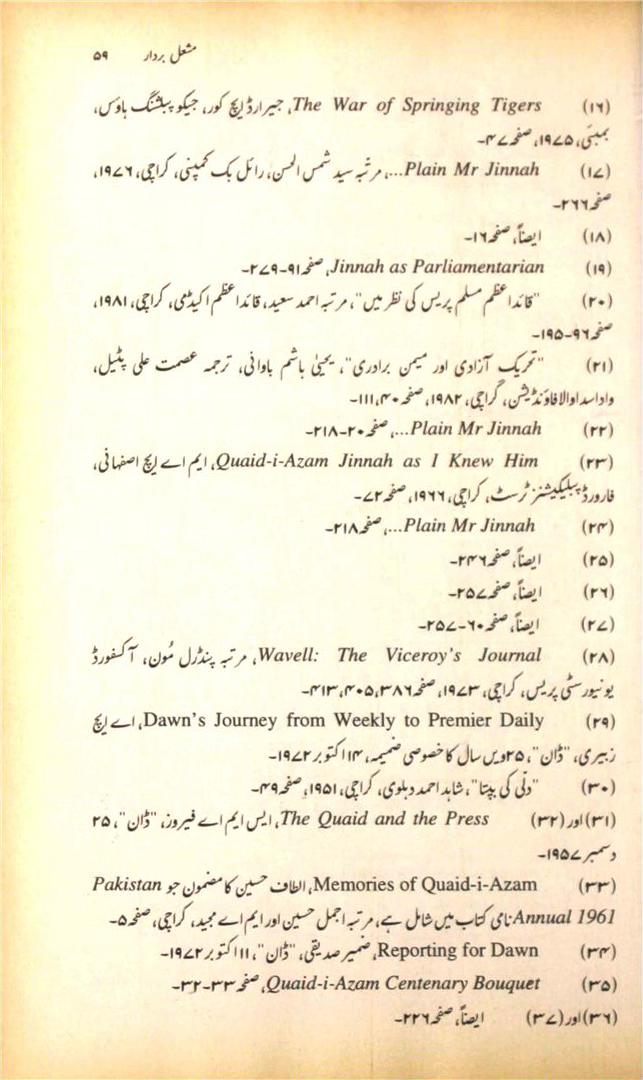 مشعل بردار ۵۹
(۱۶) The War of Springing Tigers، جیرارڈ ایچ کور، جیکو پبلشنگ ہاؤس،
بمبئی، ۱۹۷۵، صفحہ ۴۷۔
(۱۷) Plain Mr Jinnah...، مرتبہ سید شمس الحسن، رائل بک کمپنی، کراچی، ۱۹۷۶،
صفحہ ۲۶۶۔
(۱۸) ایضاً، صفحہ ۱۶۔
(۱۹) Jinnah as Parliamentarian، صفحہ ۹۱-۲۷۹۔
(۲۰) "قائداعظم مسلم پریس کی نظر میں"، مرتبہ احمد سعید، قائداعظم اکیڈمی، کراچی، ۱۹۸۱،
صفحہ ۹۶-۱۹۵۔
(۲۱) "تحریک آزادی اور میمن برادری"، یحییٰ ہاشم باوانی، ترجمہ عصمت علی پٹیل،
واداسداوالا فاؤنڈیشن، کراچی، ۱۹۸۲، صفحہ ۴۰، ۱۱۱۔
(۲۲) Plain Mr Jinnah...، صفحہ ۲۰-۲۱۸۔
(۲۳) Quaid-i-Azam Jinnah as I Knew Him، ایم اے ایچ اصفہانی،
فارورڈ پبلیکیشنز ٹرسٹ، کراچی، ۱۹۶۶، صفحہ ۷۲۔
(۲۴) Plain Mr Jinnah...، صفحہ ۲۱۸۔
(۲۵) ایضاً، صفحہ ۲۴۶۔
(۲۶) ایضاً، صفحہ ۲۵۷۔
(۲۷) ایضاً، صفحہ ۶۰-۲۵۷۔
(۲۸) Wavell: The Viceroy's Journal، مرتبہ پنڈرل مُون، آکسفورڈ
یونیورسٹی پریس، کراچی، ۱۹۷۳، صفحہ ۳۸۶، ۴۰۵، ۴۱۳۔
(۲۹) Dawn's Journey from Weekly to Premier Daily، اے ایچ
زبیری، "ڈان"، ۲۵ویں سال کا خصوصی ضمیمہ، ۱۴ اکتوبر ۱۹۷۲۔
(۳۰) "دلّی کی بپتا"، شاہد احمد دہلوی، کراچی، ۱۹۵۱، صفحہ ۴۹۔
(۳۱) اور (۳۲) The Quaid and the Press، ایس ایم اے فیروز، "ڈان"، ۲۵
دسمبر ۱۹۵۷۔
(۳۳) Memories of Quaid-i-Azam، الطاف حسین کا مضمون جو Pakistan
Annual 1961 نامی کتاب میں شامل ہے، مرتبہ اجمل حسین اور ایم اے مجید، کراچی، صفحہ ۵۔
(۳۴) Reporting for Dawn، ضمیر صدیقی، "ڈان"، ۱۱ اکتوبر ۱۹۷۲۔
(۳۵) Quaid-i-Azam Centenary Bouquet، صفحہ ۳۳-۳۲۔
(۳۶) اور (۳۷) ایضاً، صفحہ ۲۲۶۔